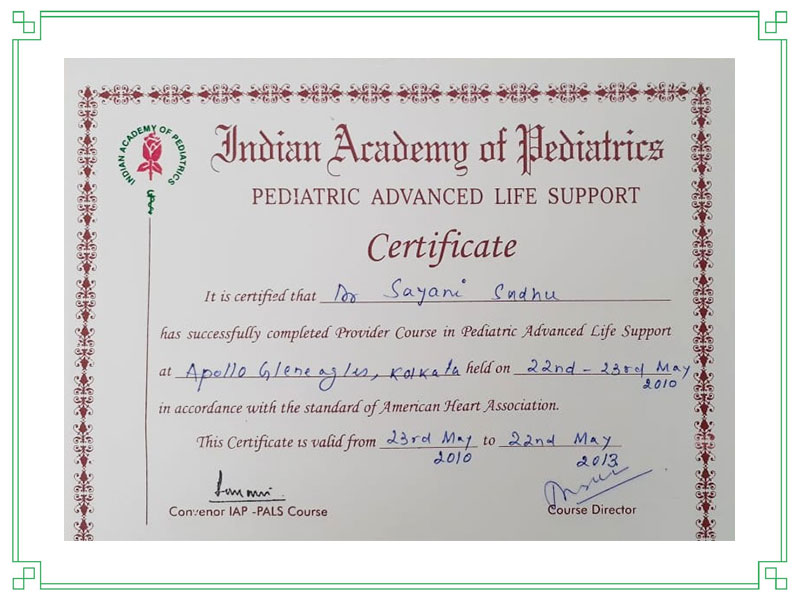 INDIAN ACADEMY OF PEDIATRICS
Indian Academy of Pediatrics
PEDIATRIC ADVANCED LIFE SUPPORT
Certificate
It is certified that Dr Sayani Sndhu
has successfully completed Provider Course in Pediatric Advanced Life Support
at Apollo Gleneagles, Kolkata held on 22nd - 23rd May
2010
in accordance with the standard of American Heart Association.
This Certificate is valid from 23rd May to 22nd May
2010 2013
Convenor IAP -PALS Course Course Director